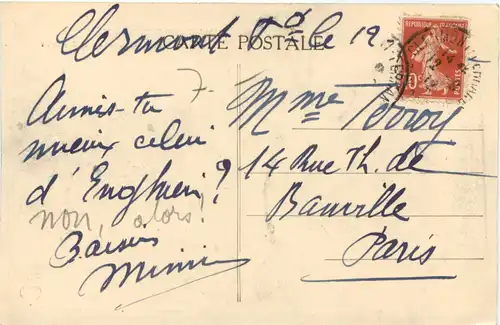 Clermont Fd le 12
CARTE POSTALE
7-
Aimes-tu
mieux celui
d'Enghien?
non, alors!
Baisers
Mimi
Mme Perroy
14 Rue Th. de
Banville
Paris
REPUBLIQUE FRANÇAISE
10c
POSTES